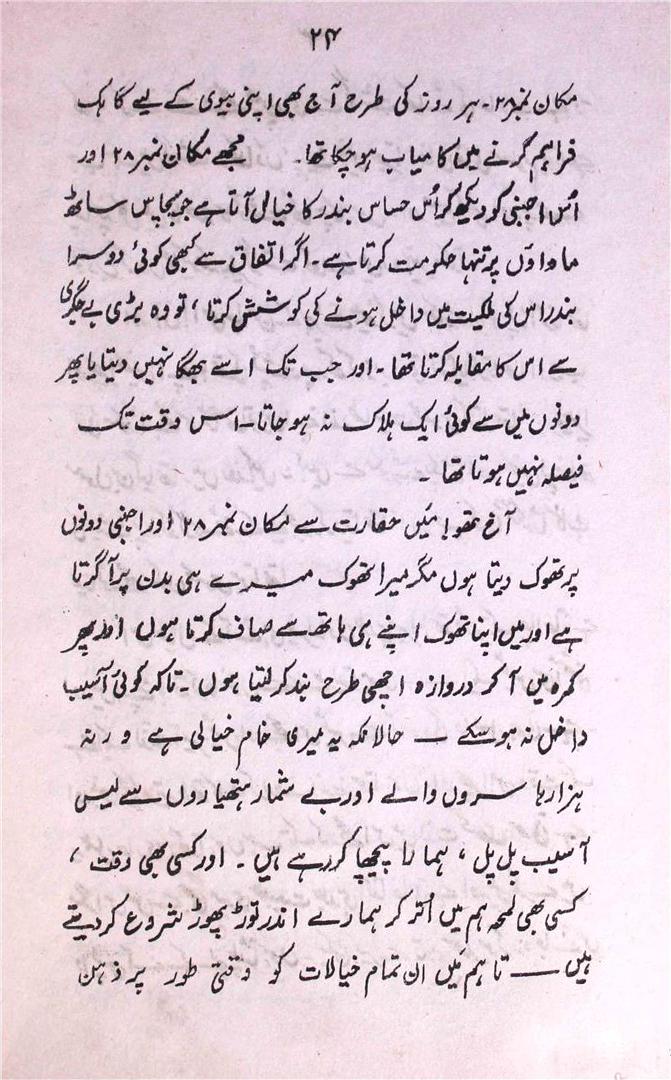 ۲۴
مکان نمبر ۲۸۔ ہر روز کی طرح آج بھی اپنی بیوی کے لیے گاہک
فراہم کرنے میں کامیاب ہو چکا تھا۔ مجھے مکان نمبر ۲۸ اور
اُس اجنبی کو دیکھ کر اُس حساس بندر کا خیال آتا ہے جو پچاس ساٹھ
ماداؤں پر تنہا حکومت کرتا ہے۔ اگر اتفاق سے کبھی کوئی دوسرا
بندر اس کی ملکیت میں داخل ہونے کی کوشش کرتا، تو وہ بڑی بے جگری
سے اس کا مقابلہ کرتا تھا۔ اور جب تک اسے بھگا نہیں دیتا یا پھر
دونوں میں سے کوئی ایک ہلاک نہ ہو جاتا۔ اس وقت تک
فیصلہ نہیں ہوتا تھا۔
آخ تھو! میں حقارت سے مکان نمبر ۲۸ اور اجنبی دونوں
پر تھوک دیتا ہوں مگر میرا تھوک میرے ہی بدن پر آ گرتا
ہے اور میں اپنا تھوک اپنے ہی ہاتھ سے صاف کرتا ہوں اور پھر
کمرہ میں آ کر دروازہ اچھی طرح بند کر لیتا ہوں۔ تاکہ کوئی آسیب
داخل نہ ہو سکے — حالانکہ یہ میری خام خیالی ہے ورنہ
ہزارہا سروں والے اور بے شمار ہتھیاروں سے لیس
آسیب پل پل، ہمارا پیچھا کر رہے ہیں۔ اور کسی بھی وقت،
کسی بھی لمحہ ہم میں اُتر کر ہمارے اندر توڑ پھوڑ شروع کر دیتے
ہیں — تاہم میں ان تمام خیالات کو وقتی طور پر ذہن